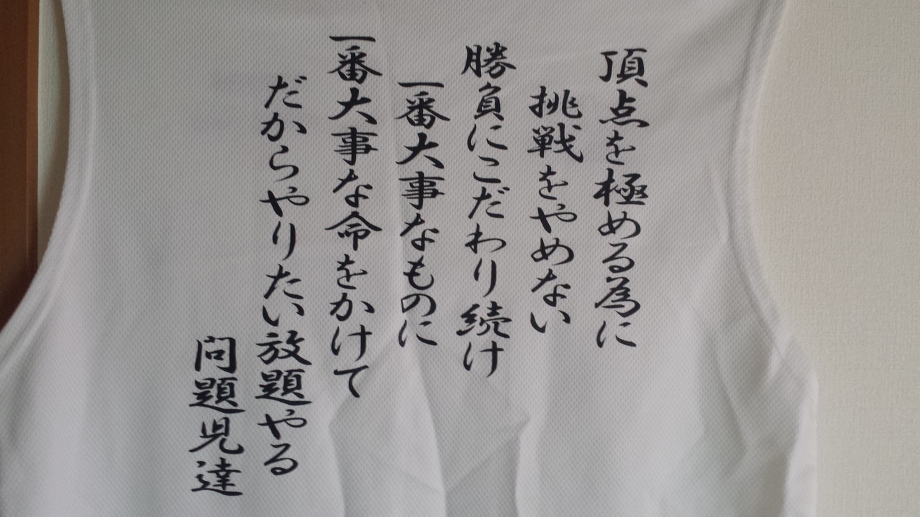 頂点を極める為に
挑戦をやめない
勝負にこだわり続け
一番大事なものに
一番大事な命をかけて
だからやりたい放題やる
問題児達